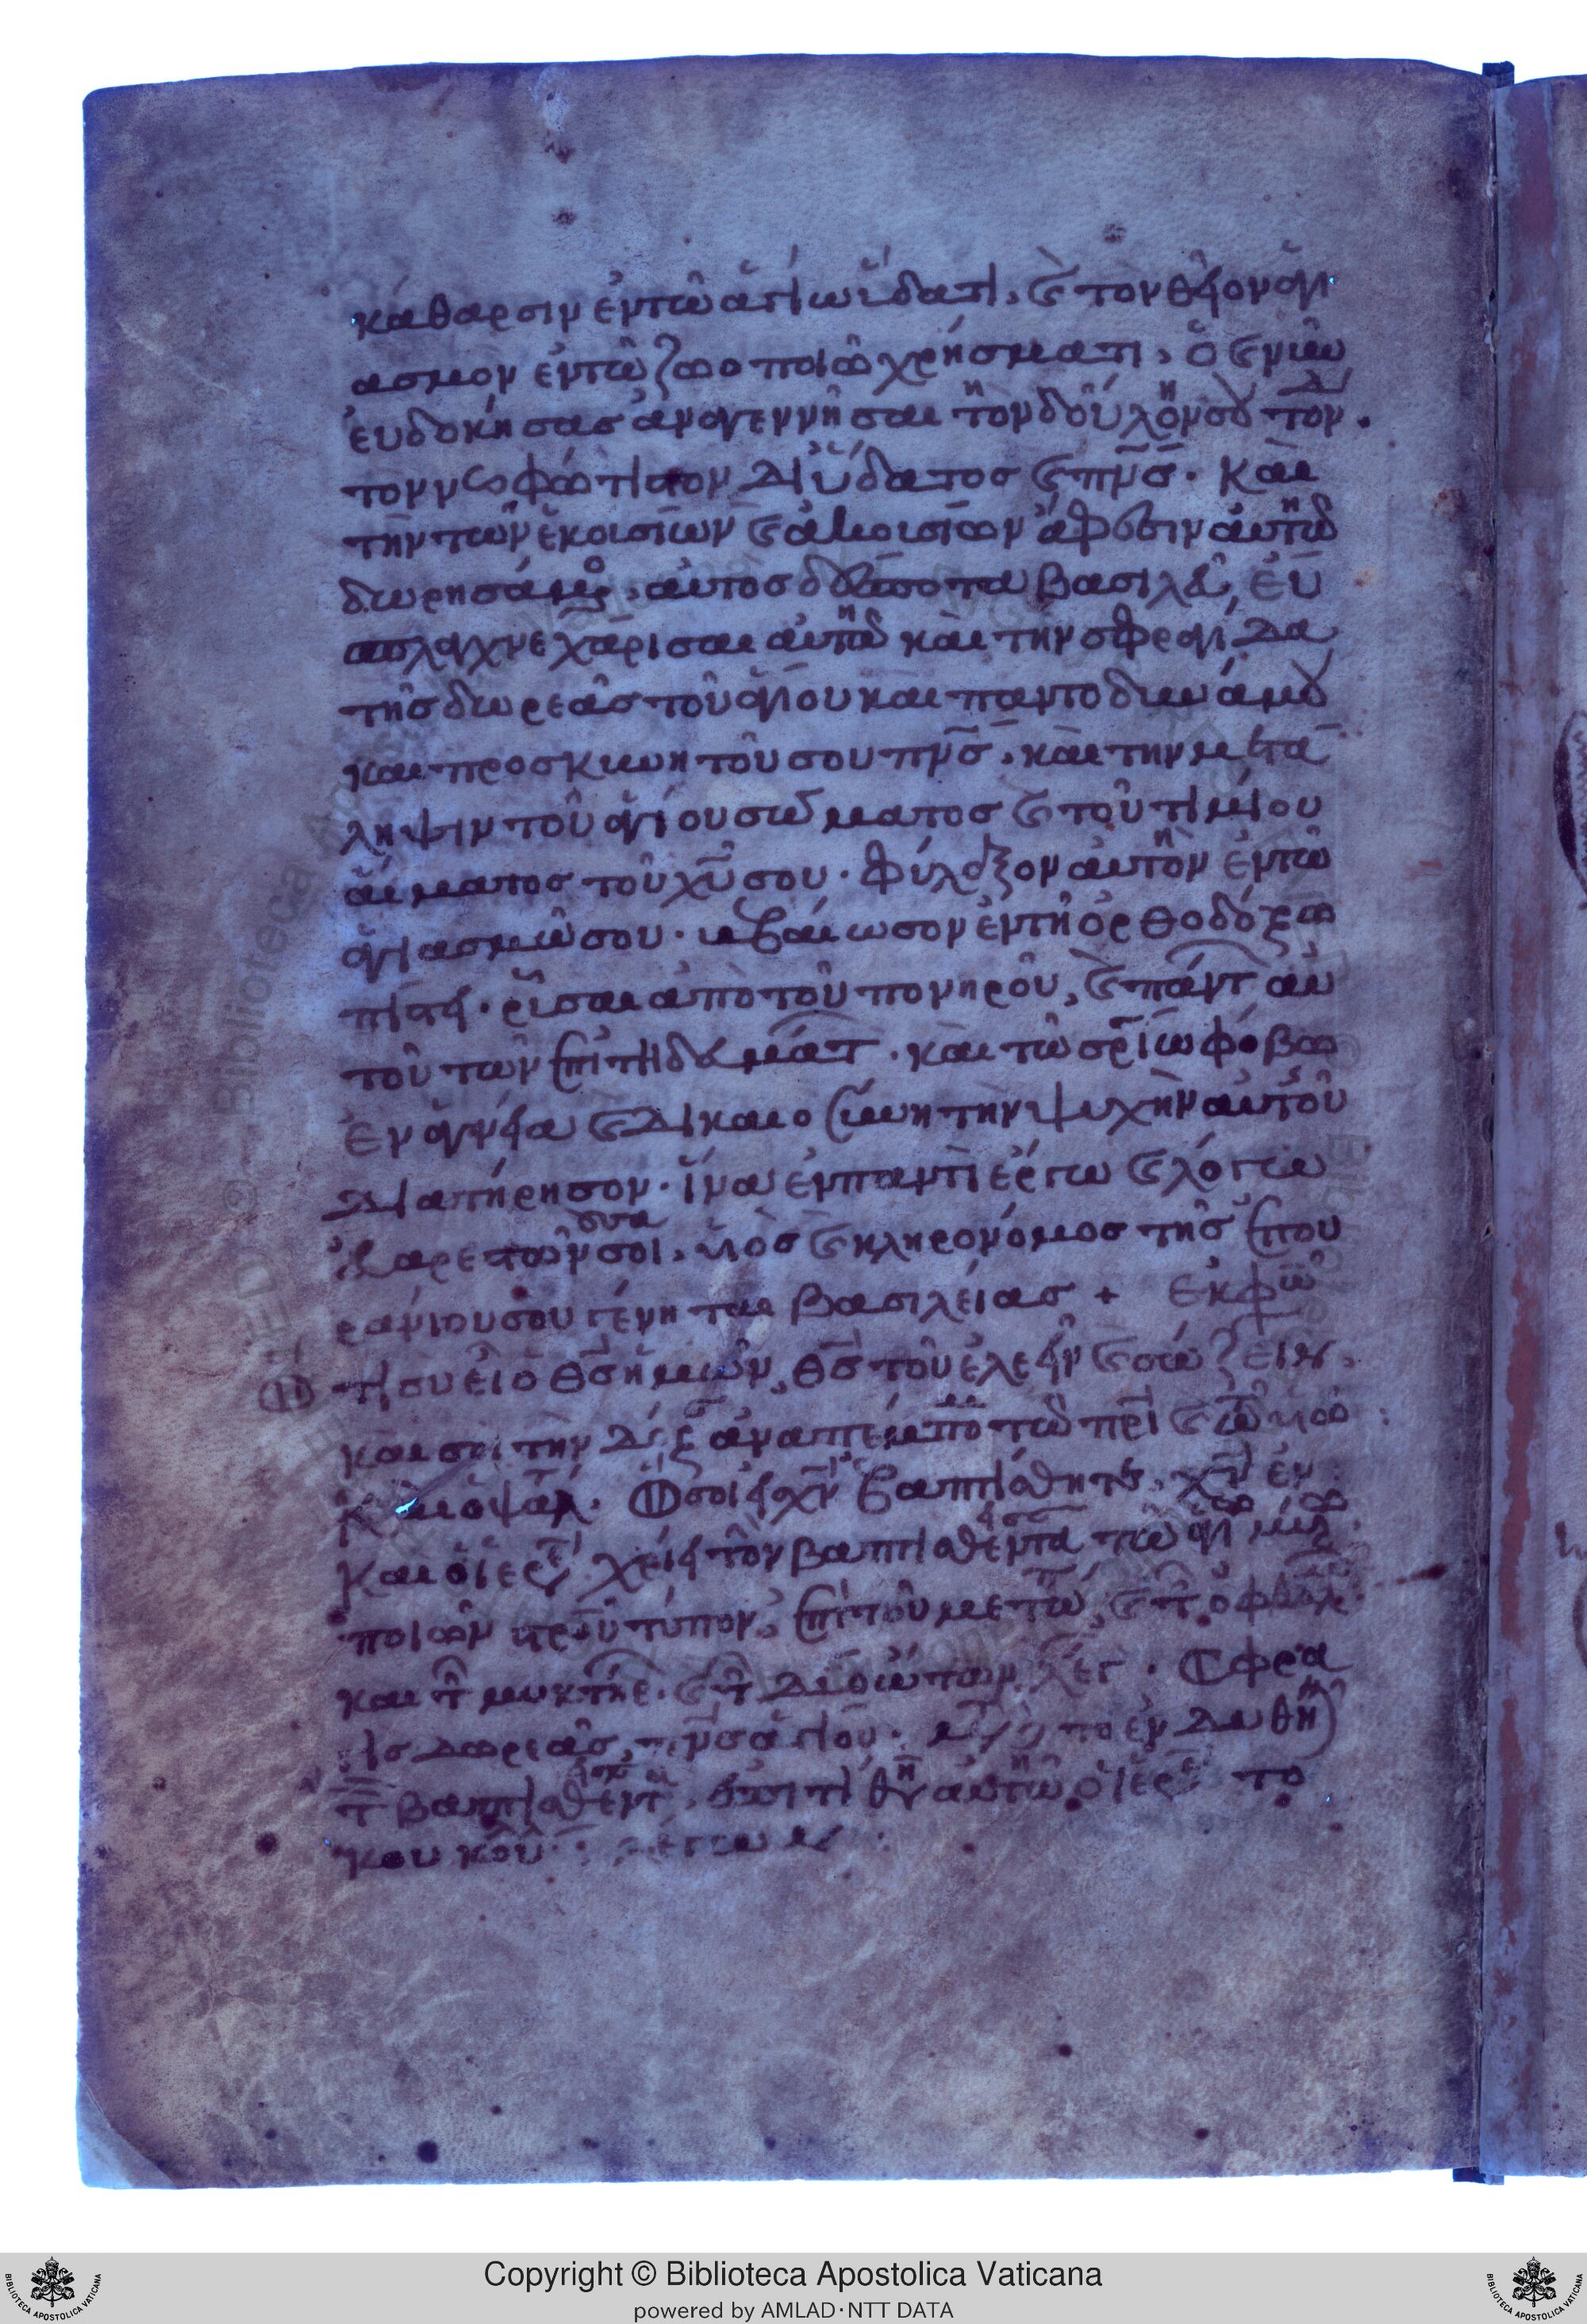 κάθαρσιν ἐν τῶ ἁγίω ὕδατι, καὶ τὸν θεῖον ἁγι
ασμὸν ἐν τῶ ζωοποιῶ χρήσματι, ὁ καὶ νῦν
ἐυδοκήσας ἀναγεννῆσαι τὸν δοῦλόν σου τὸν
τον νεοφώτιστον δι ὕδατος καὶ πνς. καὶ
τὴν τῶν ἑκουσίων καὶ ἀκουσίων ἄφεσιν αὐτῶ
δωρησάμενος, αὐτὸς δέσποτα βασιλεῦ, εὔ
σπλαγχνε χάρισαι αὐτῶ καὶ τὴν σφραγίδα
τῆς δωρεᾶς τοῦ ἁγίου καὶ παντοδυνάμου
καὶ προσκυνητοῦ σου πνς, καὶ τὴν μετά
ληψιν τοῦ ἁγίου σώματος καὶ τοῦ τιμίου
αἵματος τοῦ χυ σου. φύλαξον αὐτὸν ἐν τῶ
ἁγιασμῶ σου. βεβαίωσον ἐν τῆ ὀρθοδόξω
πίστει. ῥῦσαι ἀπὸ τοῦ πονηροῦ, καὶ πάντ αὐ
τοῦ τῶν ἐπιτηδευμάτ. καὶ τῶ σρίω φόβω
ἐν ἁγνεία καὶ δικαιοσύνη τὴν ψυχὴν αὐτοῦ
διατήρησον. ἵνα ἐν παντὶ ἔργω καὶ λόγω
εὐαρεστῶν σοι, υἱὸς καὶ κληρονόμος τῆς ἐπου
ρανίου σου γένηται βασιλείας + ἐκφω
τι συ εἶ ὁ θς ἡμῶν, θς τοῦ ἐλεεῖν καὶ σώζειν,
καὶ σοὶ τὴν δόξ ἀναπέμπο τῶ πρι καὶ τῶ υἱῶ
καὶ ὁ ψάλ. Ὅσοι εἰς χν ἐβαπτίσθητε, χν ἐν
καὶ ὁ ἱερ χρίει τὸν βαπτισθέντα τῶ ἁγίω μύρω
ποιῶν στρου τύπον, ἐπὶ τοῦ μετώ, καὶ τ ὀφθαλ
καὶ τ μυκτήρ. καὶ τ δύο ὤτων λέγ. Σφρα
γὶς δωρεᾶς πνς ἁγίου. τὸ ἐνδυθῆ
τ βαπτισθέντ, ἐπιτίθη αὐτῶ ὁ ἱερ το
κουκού